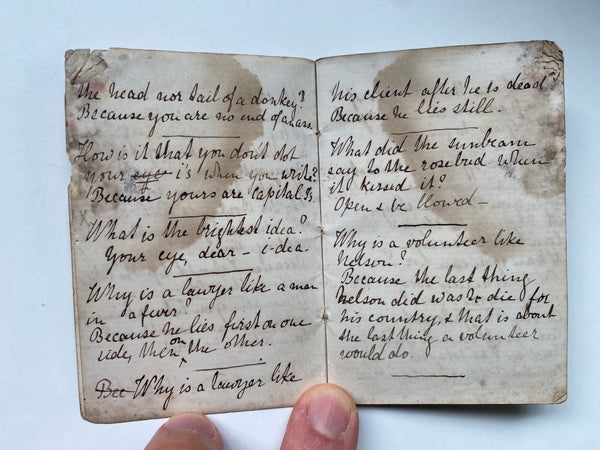 the head nor tail of a donkey?
Because you are no end of an ass.
How is it that you don't dot
your eye i's when you write?
Because yours are capital I's.
What is the brightest idea?
Your eye, dear – i-dea.
Why is a lawyer like a man
in a fever?
Because he lies first on one
side, then on the other.
Bec Why is a lawyer like
his client after he is dead
Because he lies still.
What did the sunbeam
say to the rosebud when
it kissed it?
Open & be blowed –
Why is a volunteer like
Nelson?
Because the last thing
Nelson did was to die for
his country, & that is about
the last thing a volunteer
would do.